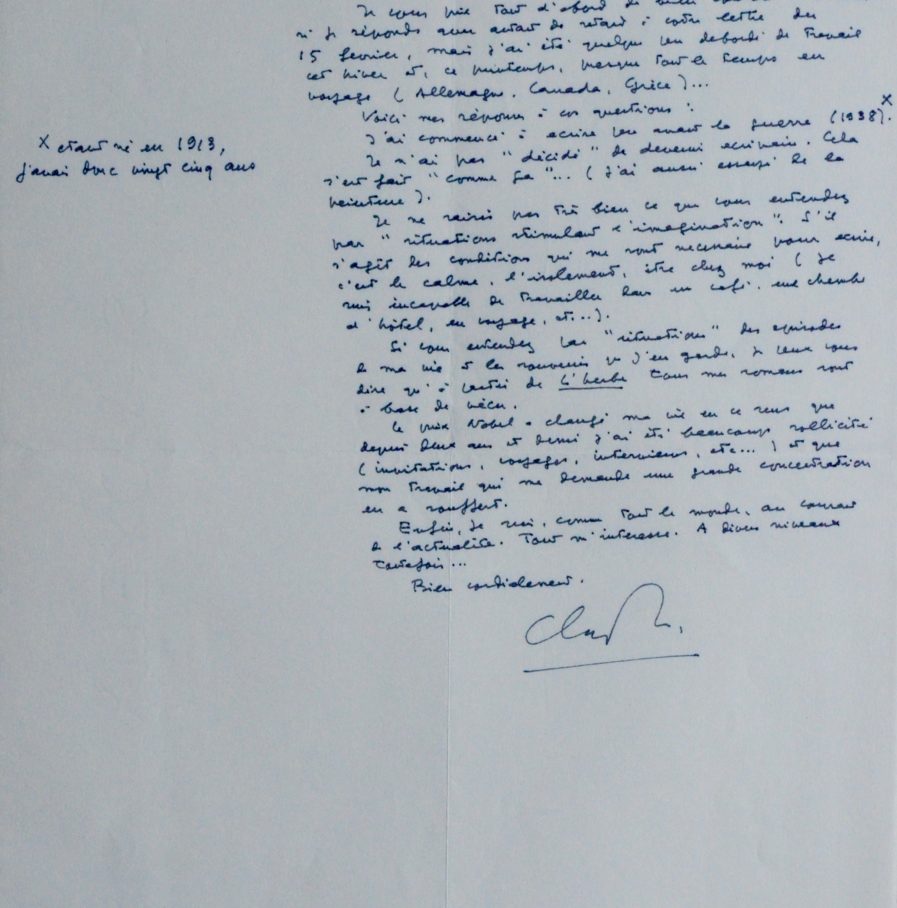 Je vous prie tout d'abord de bien
si je réponds avec autant de retard à votre lettre du
15 février, mais j'ai été quelque peu débordé de travail
cet hiver et, ce printemps, presque tout le temps en
voyage (Allemagne, Canada, Grèce)...
Voici mes réponses à vos questions :
J'ai commencé à écrire peu avant la guerre (1938). X
X étant né en 1913,
j'avais donc vingt cinq ans
Je n'ai pas "décidé" de devenir écrivain. Cela
s'est fait "comme ça"... (J'ai aussi essayé de la
peinture).
Je ne saisis pas très bien ce que vous entendez
par "situations stimulant l'imagination". S'il
s'agit des conditions qui me sont nécessaires pour écrire,
c'est le calme, l'isolement, être chez moi (je
suis incapable de travailler dans un café, une chambre
d'hôtel, en voyage, etc...).
Si vous entendez par "situations" des épisodes
de ma vie et les souvenirs que j'en garde, je peux vous
dire qu'à partir de L'herbe tous mes romans sont
à base de vécu.
Le prix Nobel a changé ma vie en ce sens que
depuis deux ans et demi j'ai été beaucoup sollicité
(invitations, voyages, interviews, etc...) et que
mon travail qui me demande une grande concentration
en a souffert.
Enfin, je suis, comme tout le monde, au courant
de l'actualité. Tout m'intéresse. A divers niveaux
toutefois...
Bien cordialement.